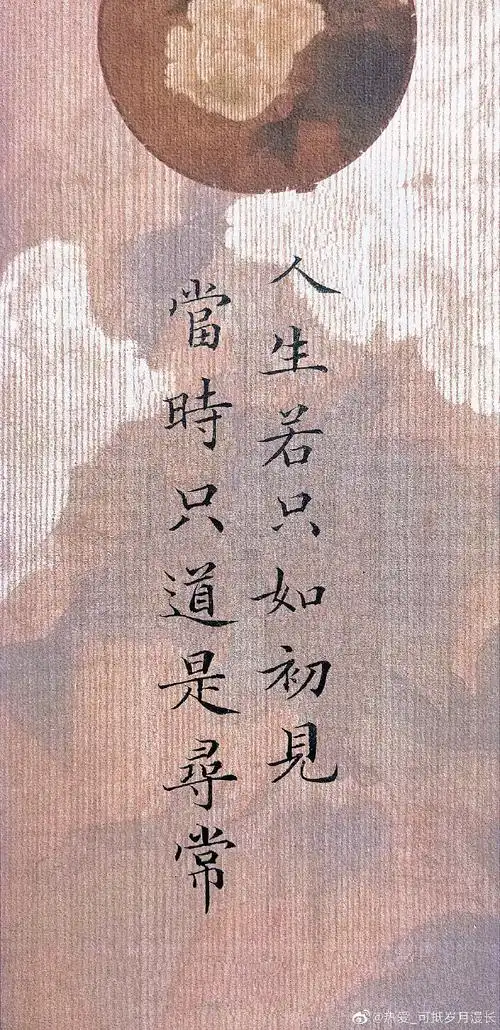 人生若只如初見
當時只道是尋常
@热爱_可抵岁月漫长